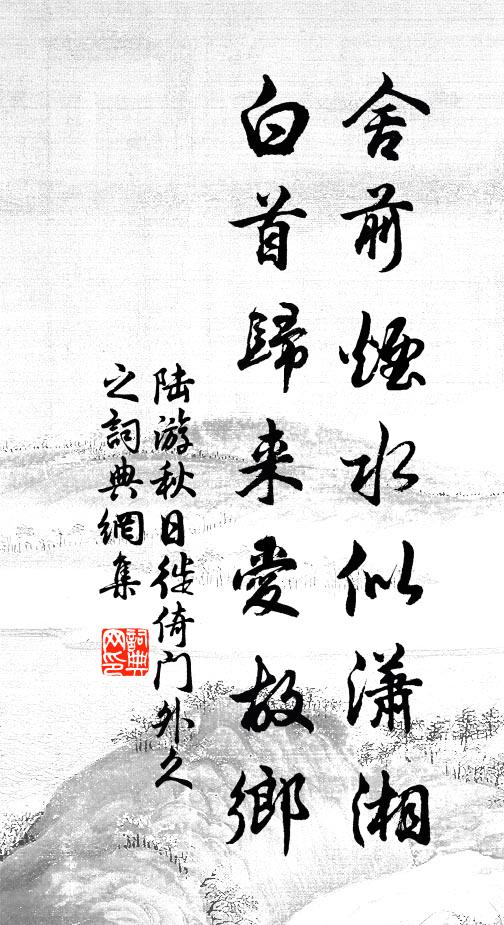 舍前煙水似瀟湘
白首歸来愛故鄉
陆游秋日徙倚门外久
之詞典網集
詞典网印